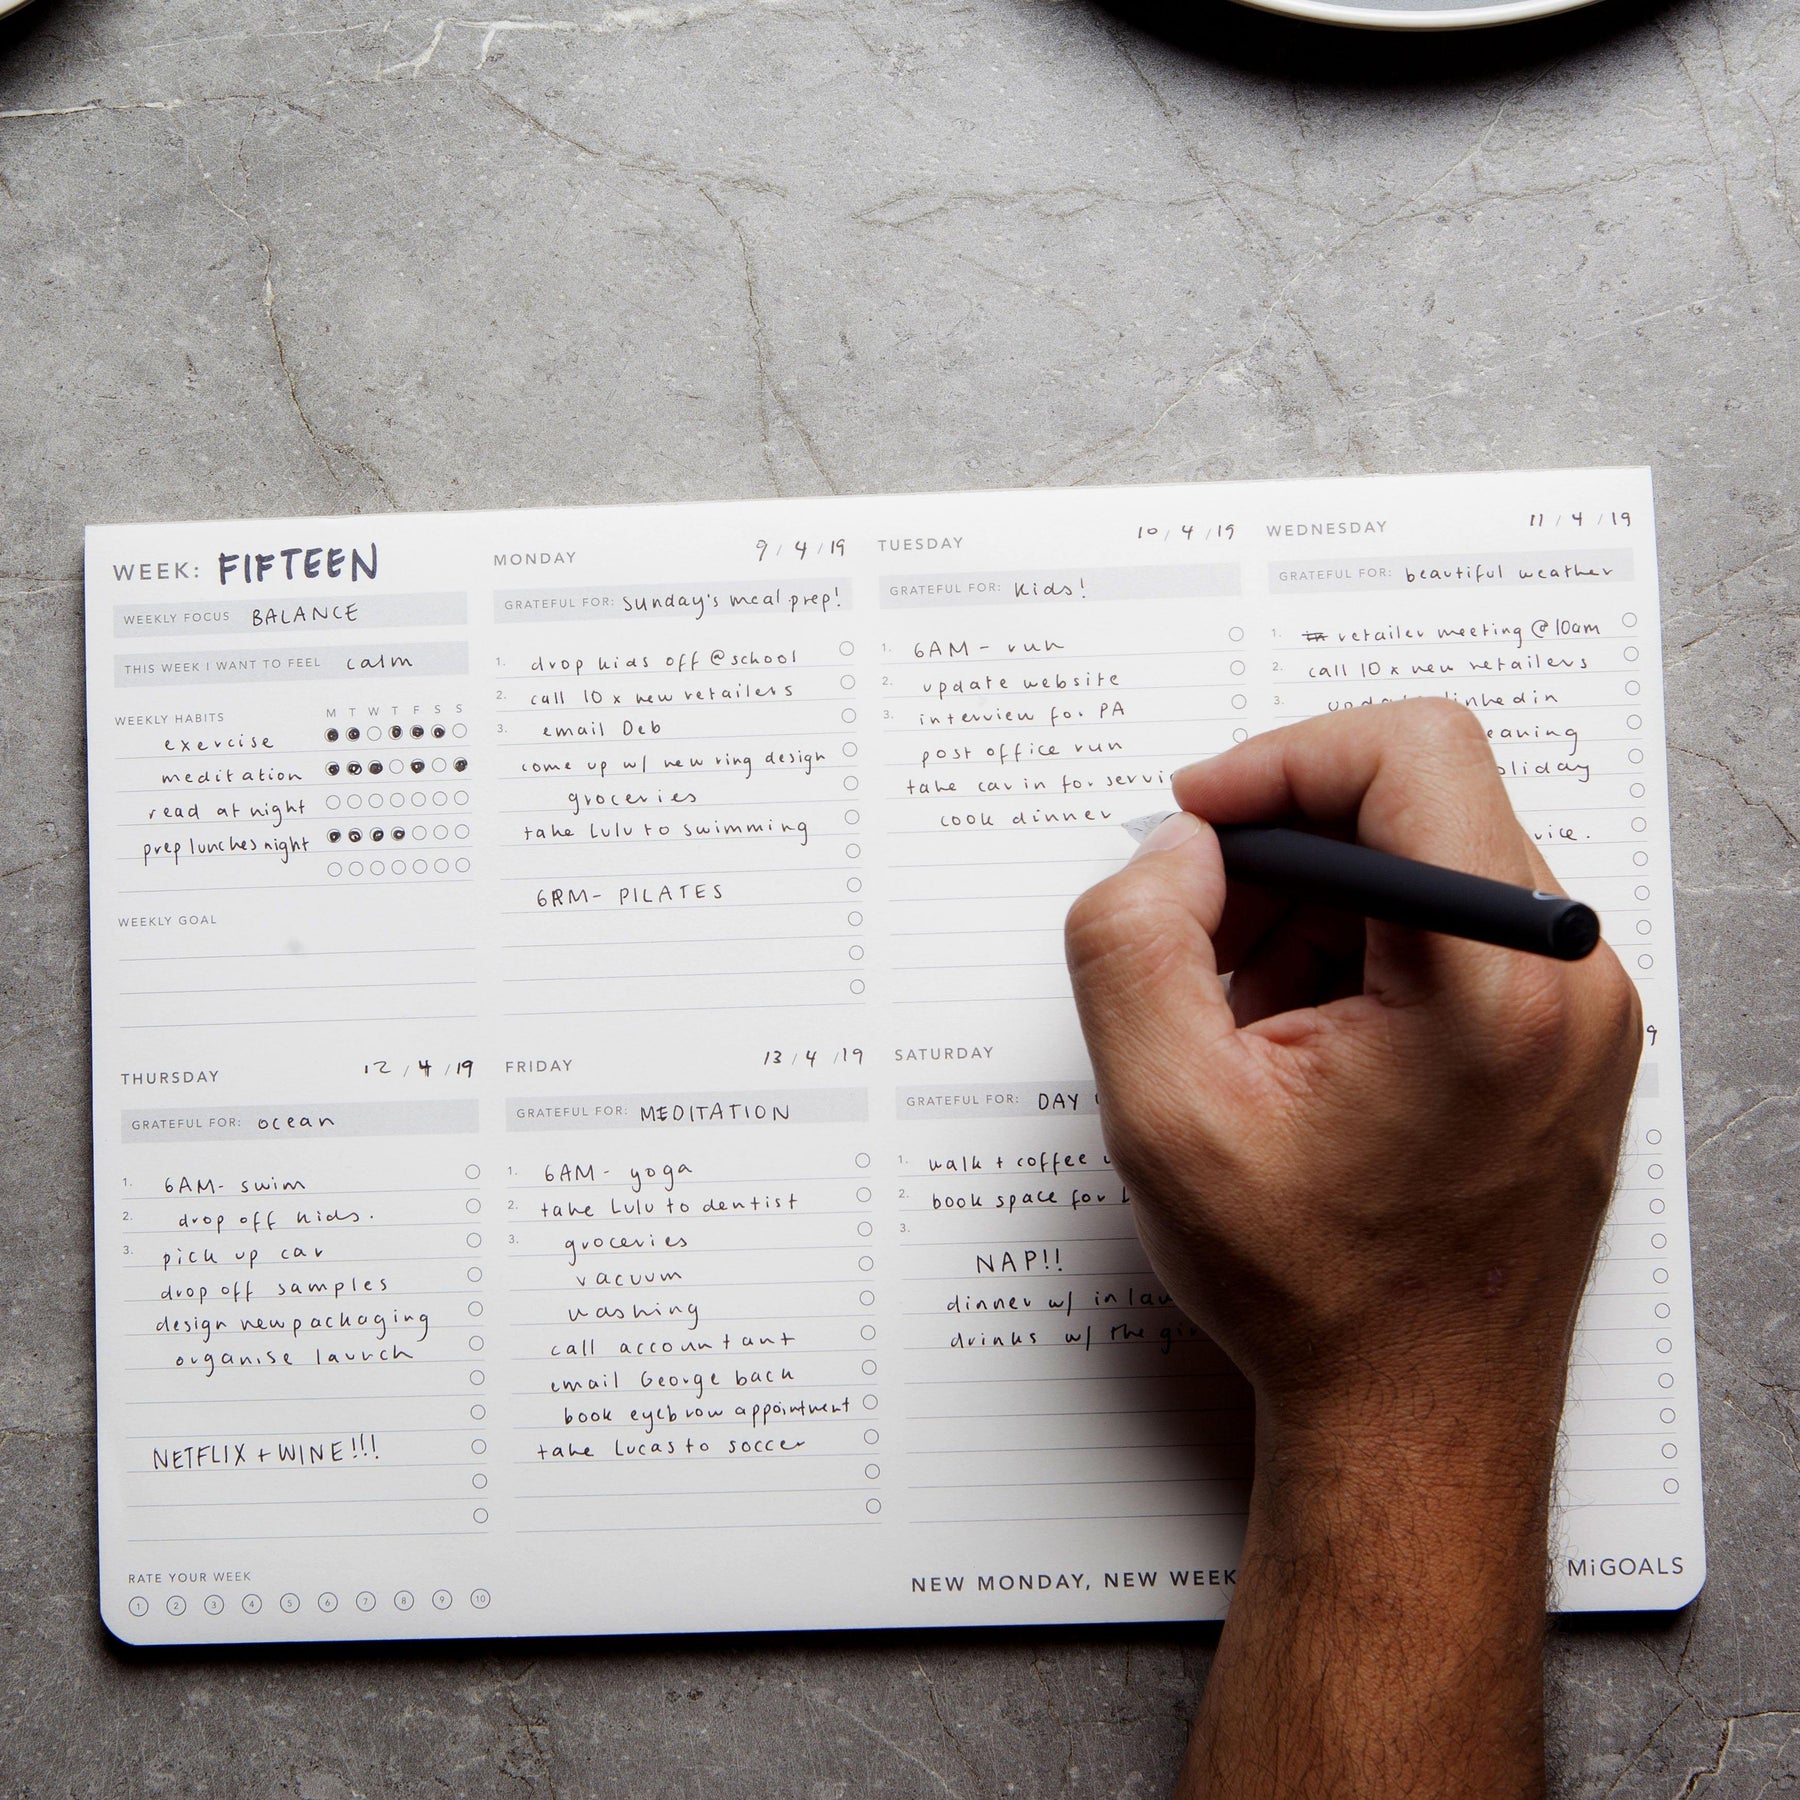 WEEK: FIFTEEN
WEEKLY FOCUS BALANCE
THIS WEEK I WANT TO FEEL calm
WEEKLY HABITS M T W T F S S
exercise
meditation
read at night
prep lunches night
WEEKLY GOAL
MONDAY 9/4/19
GRATEFUL FOR: sunday's meal prep!
1. drop kids off @ school
2. call 10 x new retailers
3. email Deb
come up w/ new ring design
groceries
take Lulu to swimming
6PM- PILATES
TUESDAY 10/4/19
GRATEFUL FOR: kids!
1. 6AM - run
2. update website
3. interview for PA
post office run
take car in for
cook dinner
WEDNESDAY 11/4/19
GRATEFUL FOR: beautiful weather
1. retailer meeting @ 10am
2. call 10 x new retailers
3. linkedin
THURSDAY 12/4/19
GRATEFUL FOR: ocean
1. 6AM- swim
2. drop off kids.
3. pick up car
drop off samples
design new packaging
organise launch
NETFLIX + WINE!!!
FRIDAY 13/4/19
GRATEFUL FOR: MEDITATION
1. 6AM- yoga
2. take Lulu to dentist
3. groceries
vacuum
washing
call accountant
email George back
book eyebrow appointment
take Lucas to soccer
SATURDAY
GRATEFUL FOR: DAY
1. walk + coffee
2. book space for
3.
NAP!!
dinner w/ in
drinks w/ the
RATE YOUR WEEK
1 2 3 4 5 6 7 8 9 10
NEW MONDAY, NEW WEEK
MiGOALS